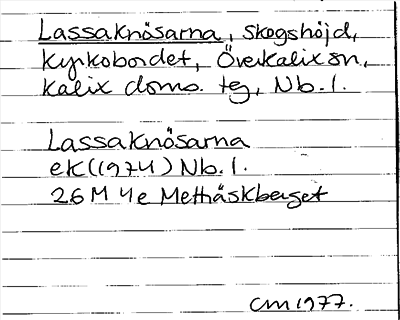 Lassaknösarna, skogshöjd,
Kyrkobordet, Överkalix sn,
Kalix doms. tg, Nb. l.
Lassaknösarna
ek (1974) Nb. l.
26 M 4e Methäskberget
CM 1977.